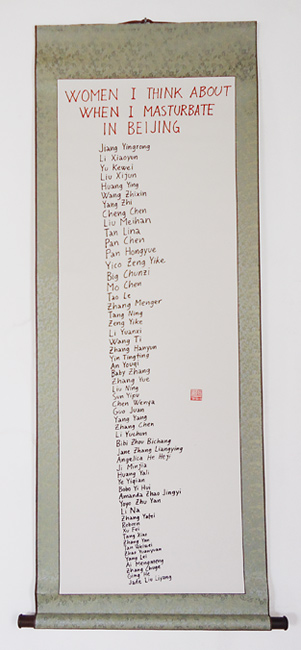 WOMEN I THINK ABOUT
WHEN I MASTURBATE
IN BEIJING
Jiang Yingrong
Li Xiaoyun
Yu Kewei
Liu Xijun
Huang Ying
Wang Zhixin
Yang Zhi
Cheng Chen
Liu Meihan
Tan Lina
Pan Chen
Pan Hongyue
Yico Zeng Yike
Big Chunzi
Mo Chen
Tao Le
Zhang Menger
Tang Ning
Zeng Yike
Li Yuanxi
Wang Ti
Zhang Hanyun
Yin Tingting
An Youqi
Baby Zhang
Zhang Yue
Liu Ning
Sun Yipu
Chen Wenya
Guo Juan
Yang Yang
Zhang Chen
Li Yuchun
Bibi Zhou Bichang
Jane Zhang Liangying
Angelica He Jieji
Ji Minjia
Huang Yali
Ye Yiqian
Bobo Yi Hui
Amanda Zhao Jingyi
Yoyo Zhu Yan
Li Na
Zhang Yafei
Reborn
Xu Fei
Tang Xiao
Zhang Yan
Tan Weiwei
Yang Lei
Ai Mengmeng
Gong He
Jade Liu Liyang